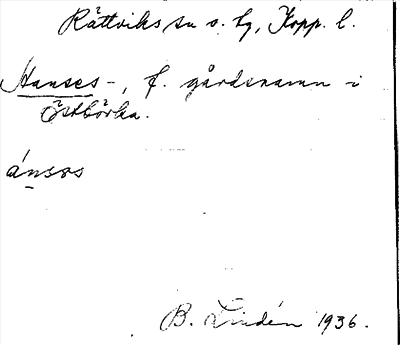 Rättviks sn o. hg, Kopp. l.
Hanses-, f. gårdsnamn i
Östbörka.
ánsos
B. Lindén 1936.